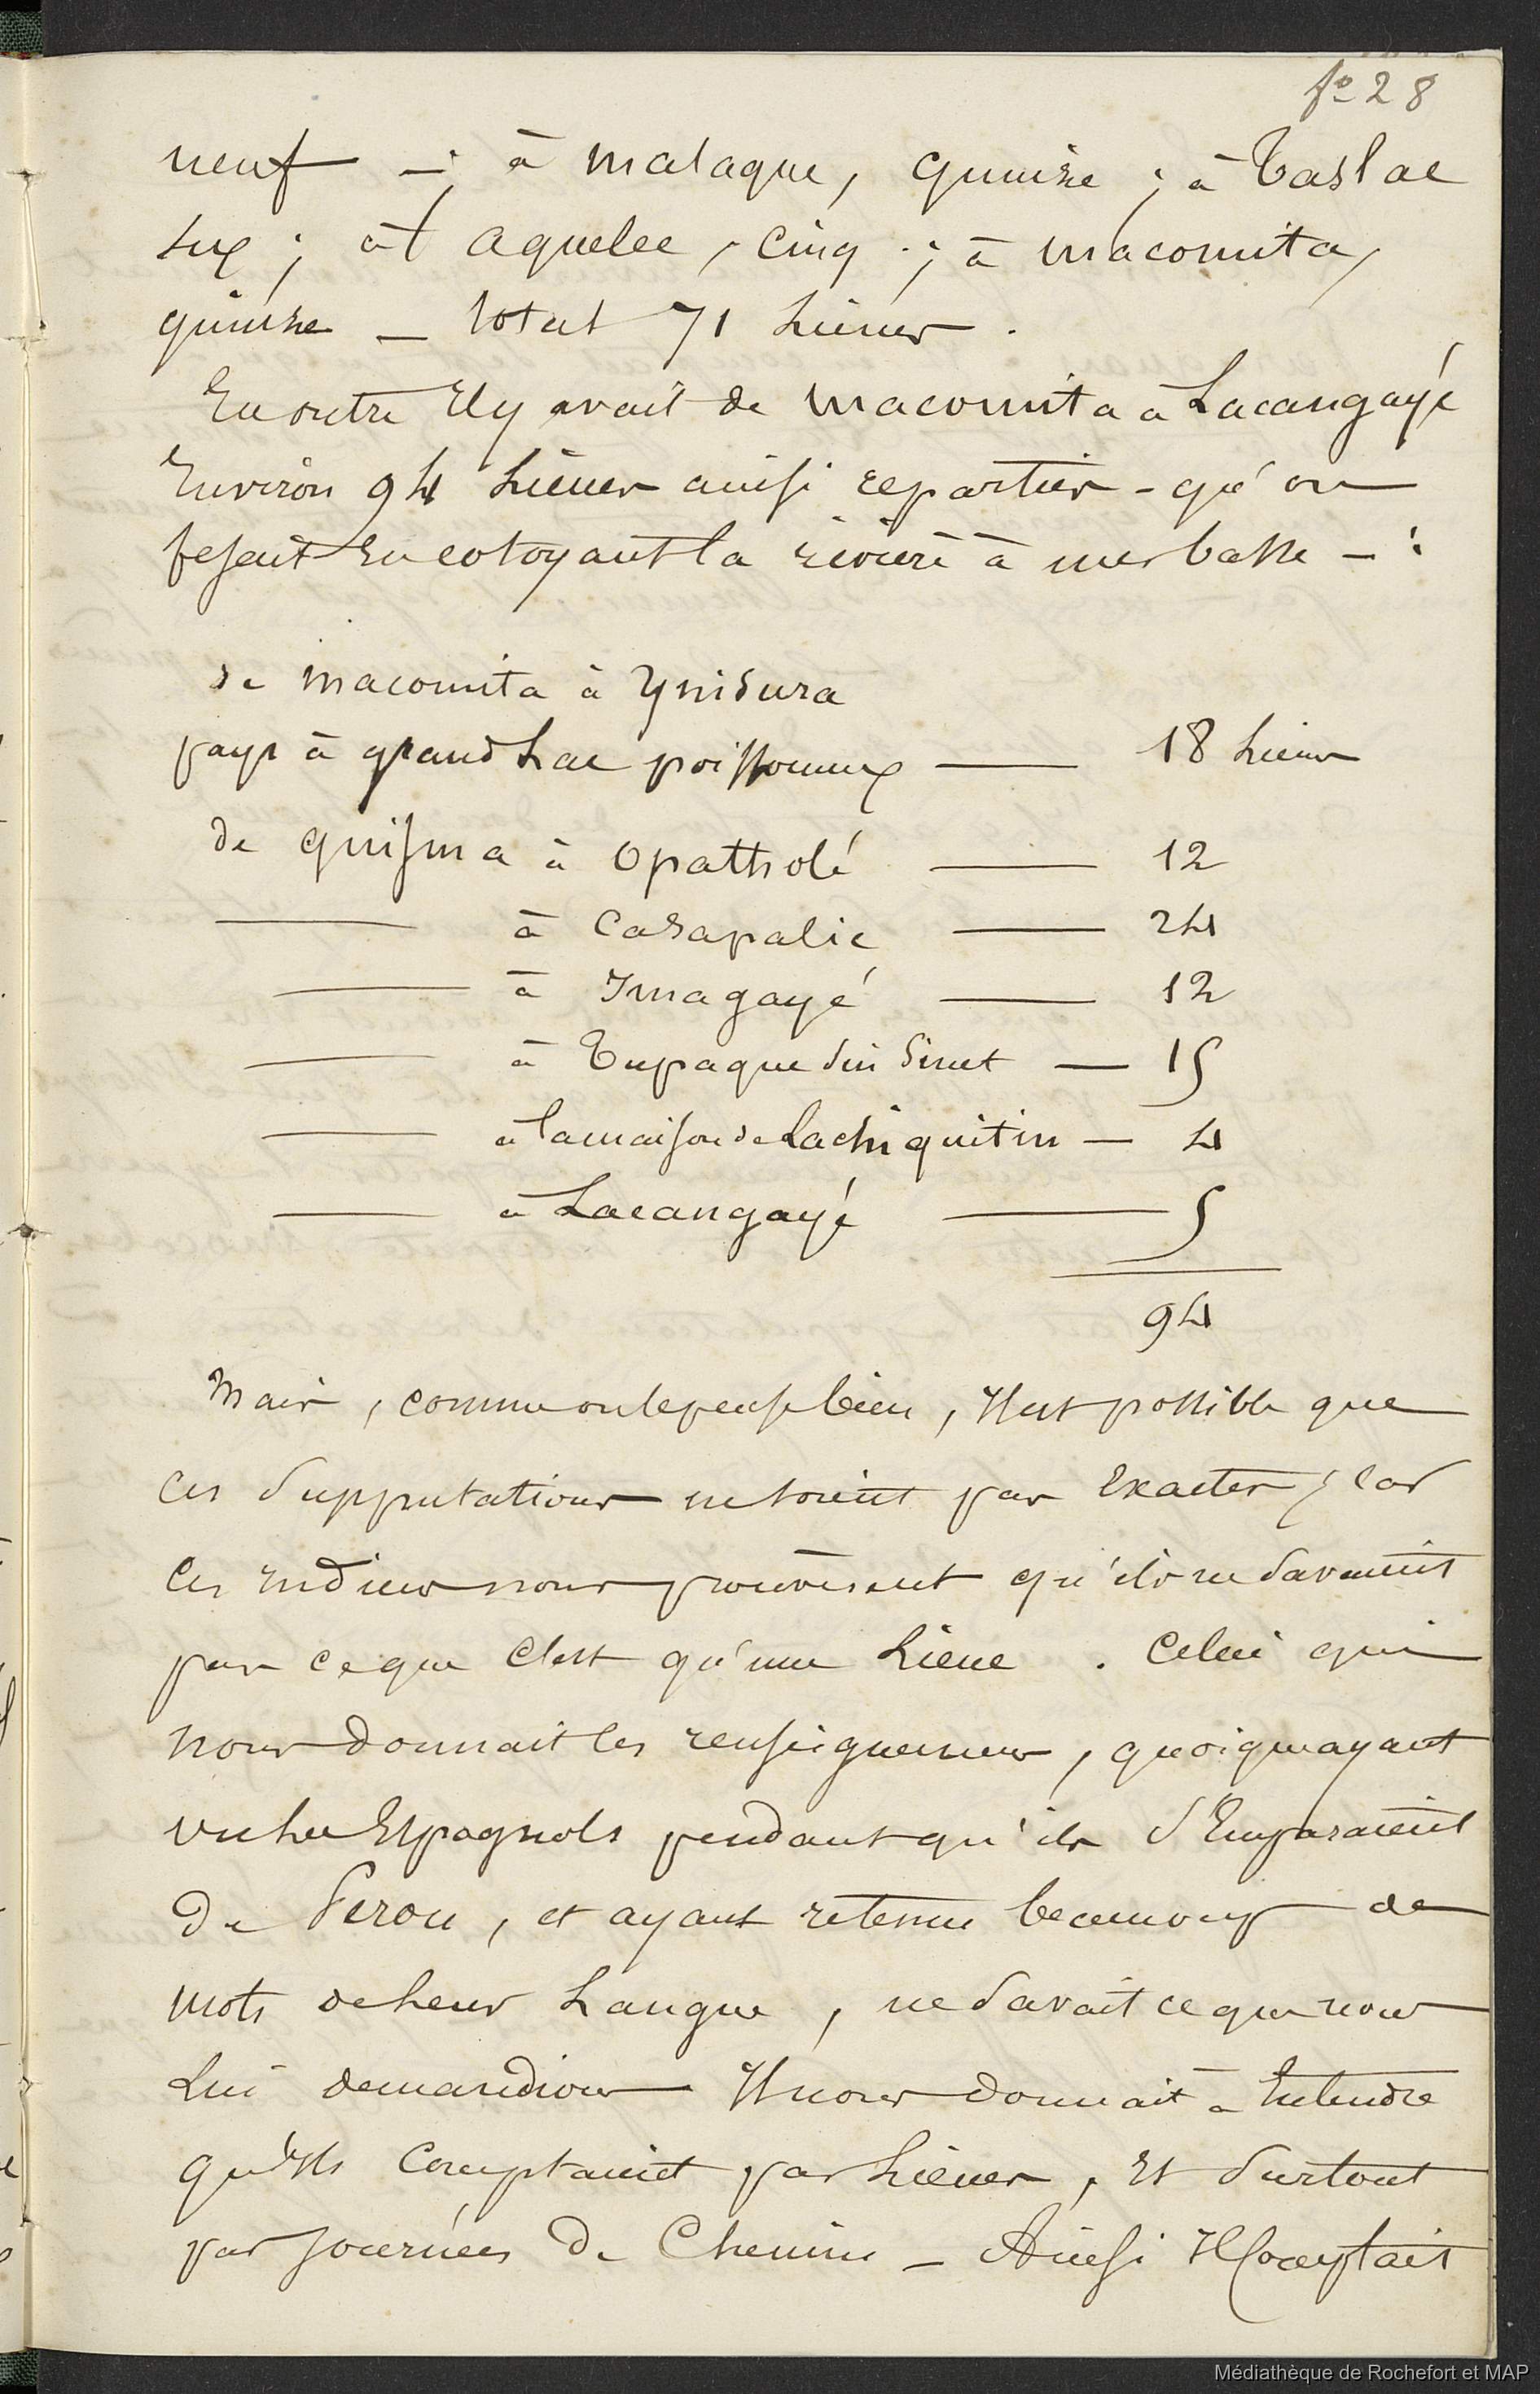 fo 28
neuf — ; à malaque, quinze ; à Taslac
six ; à t aquelee, cinq ; à macomita,
quinze — total 71 Lieues.
En outre Il y avait de macomita à Lacangayé
Environ 94 Lieues ainsi reparties - qu'on
fesait en cotoyant la rivière à mer basse — :
de macomita à Ynidura
pays à grand Lac poissonneux — 18 Lieues
de quisma à Opatholé — 12
— à Casapalic — 24
— à Imagayé — 12
— à Tupaque — 15
— à la maison de Lachiquitin — 4
— à Lacangayé — 5
94
Mais, comme on le pense bien, Il est possible que
ces Supputations ne soient pas Exactes ; car
les indiens nous prouvèrent qu'ils ne Savaient
pas ce que c'est qu'une Lieue. Celui qui
nous donnait les renseignemens, quoique ayant
vu les Espagnols pendant qu'ils S'Emparaient
du Perou, et ayant retenu beaucoup de
mots de Leur Langue, ne Savait ce que nous
Lui demandions Il nous donnait à Entendre
qu'Ils Comptaient par Lieues, Et Surtout
par journées de Chemins — Ainsi Il comptait
Médiathèque de Rochefort et MAP